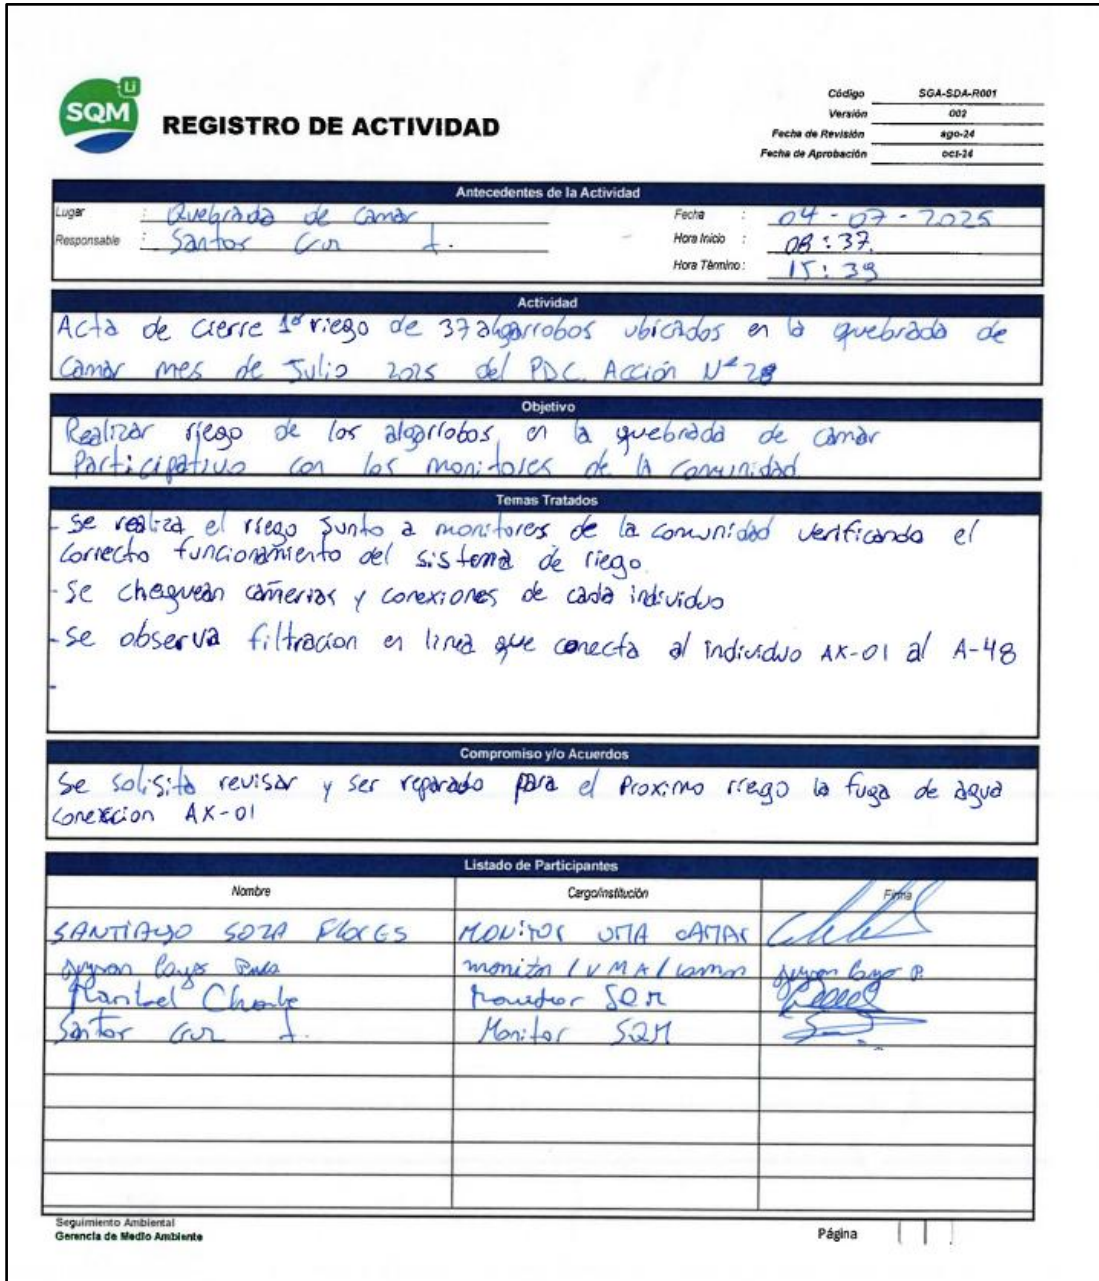 Li
SQM
REGISTRO DE ACTIVIDAD
Código SGA-SDA-R001
Versión 002
Fecha de Revisión ago-24
Fecha de Aprobación oct-24
Antecedentes de la Actividad
Lugar : Quebrada de camar
Fecha : 04-07-2025
Responsable : Santos
Hora Inicio : 08:37
Hora Término : 15:39
Actividad
Acta de cierre 1º riego de 37 algarrobos ubicados en la quebrada de
camar mes de Julio 2025 del PDC. Acción Nº 28
Objetivo
Realizar riego de los algarrobos en la quebrada de camar
Participativo con los monitores de la comunidad
Temas Tratados
- Se realiza el riego Junto a monitores de la comunidad verificando el
correcto funcionamiento del sistema de riego.
- Se chequean cañerias y conexiones de cada individuo
- Se observa filtracion en linea que conecta al individuo AX-01 al A-48
-
Compromiso y/o Acuerdos
Se solisita revisar y ser reparado para el Proximo riego la fuga de agua
AX-01
Listado de Participantes
Nombre Cargo/Institución Firma
SANTIAGO SOZA FLORES MONITOR UMA CAMAR
monitor / UMA / camar
Maribel SQM
Santos Monitor SQM
Seguimiento Ambiental
Gerencia de Medio Ambiente
Página